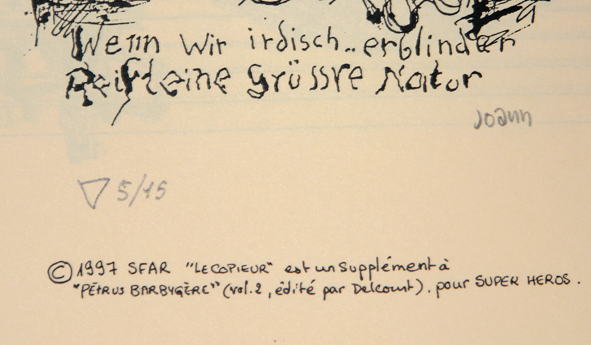 Wenn wir irdisch.. erblinden
Reift eine Grüssre Natur
Joann
5/15
© 1997 SFAR "LE COPIEUR" est un supplément à
"PÉTRUS BARBYGÈRE" (vol.2, édité par Delcourt). pour SUPER HEROS.